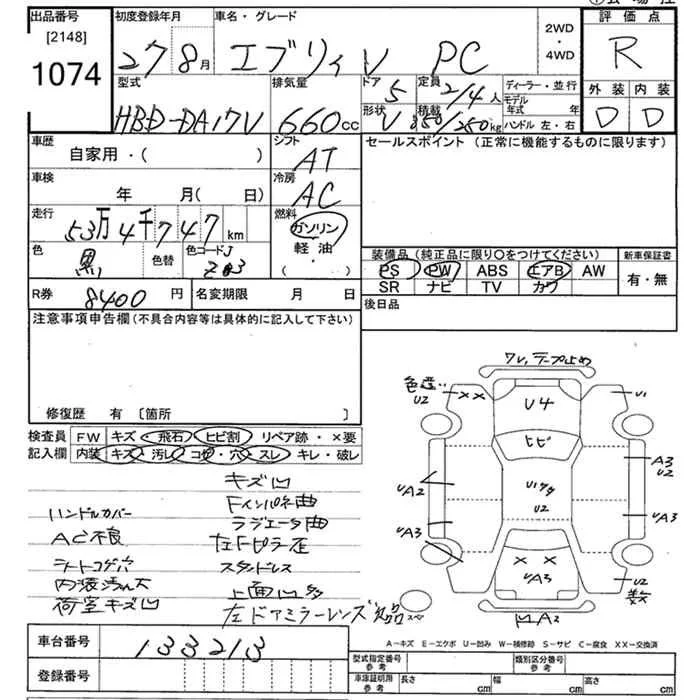 出品番号
[2148]
1074
初度登録年月
27 8月
車名・グレード
エブリィV PC
2WD
・
4WD
評価点
R
外装 内装
D D
型式
HBD-DA17V
排気量
660cc
ドア
5
定員
2/4人
形状
V
積載
350/250kg
ディーラー・並行
モデル年式 年
ハンドル 左・右
車歴
自家用・( )
シフト
AT
セールスポイント (正常に機能するものに限ります)
車検
年 月(日)
冷房
AC
走行
53万4千747km
燃料
ガソリン
軽油・
( )
色
黒
色替
色コードJ
ZJ3
装備品 (純正品に限り○をつけてください)
PS PW ABS エアB AW
SR ナビ TV カワ
新車保証書
有・無
R券
8400円
名変期限 月 日
後日品
注意事項申告欄(不具合内容等は具体的に記入して下さい)
修復歴 有 [箇所 ]
検査員
記入欄
FW キズ・飛石・ヒビ割 リペア跡・×要
内装 キズ・汚レ コゲ・穴・スレ キレ・破レ
ハンドルカバー
AC不良
シートコゲ穴
内張汚れ大
荷室キズ凹
キズ凹
Fインパネ曲
ラジエータ曲
左Fピラ歪
スタンドレス
上面凹多
左ドアミラーレンズ
ワレ、テープ止め
色違い
U2
××
U4
U1
ヒビ
A3
U2
UA2
U2
UA3
UA3
××
UA3
U2
数
スペ
A2
車台番号
133213
登録番号
A－キズ E－エクボ U－凹み W－補修跡 S－サビ C－腐食 XX－交換済
型式指定番号
参考
類別区分番号
参考
車庫証明用
参考
長さ cm
幅 cm
高さ cm